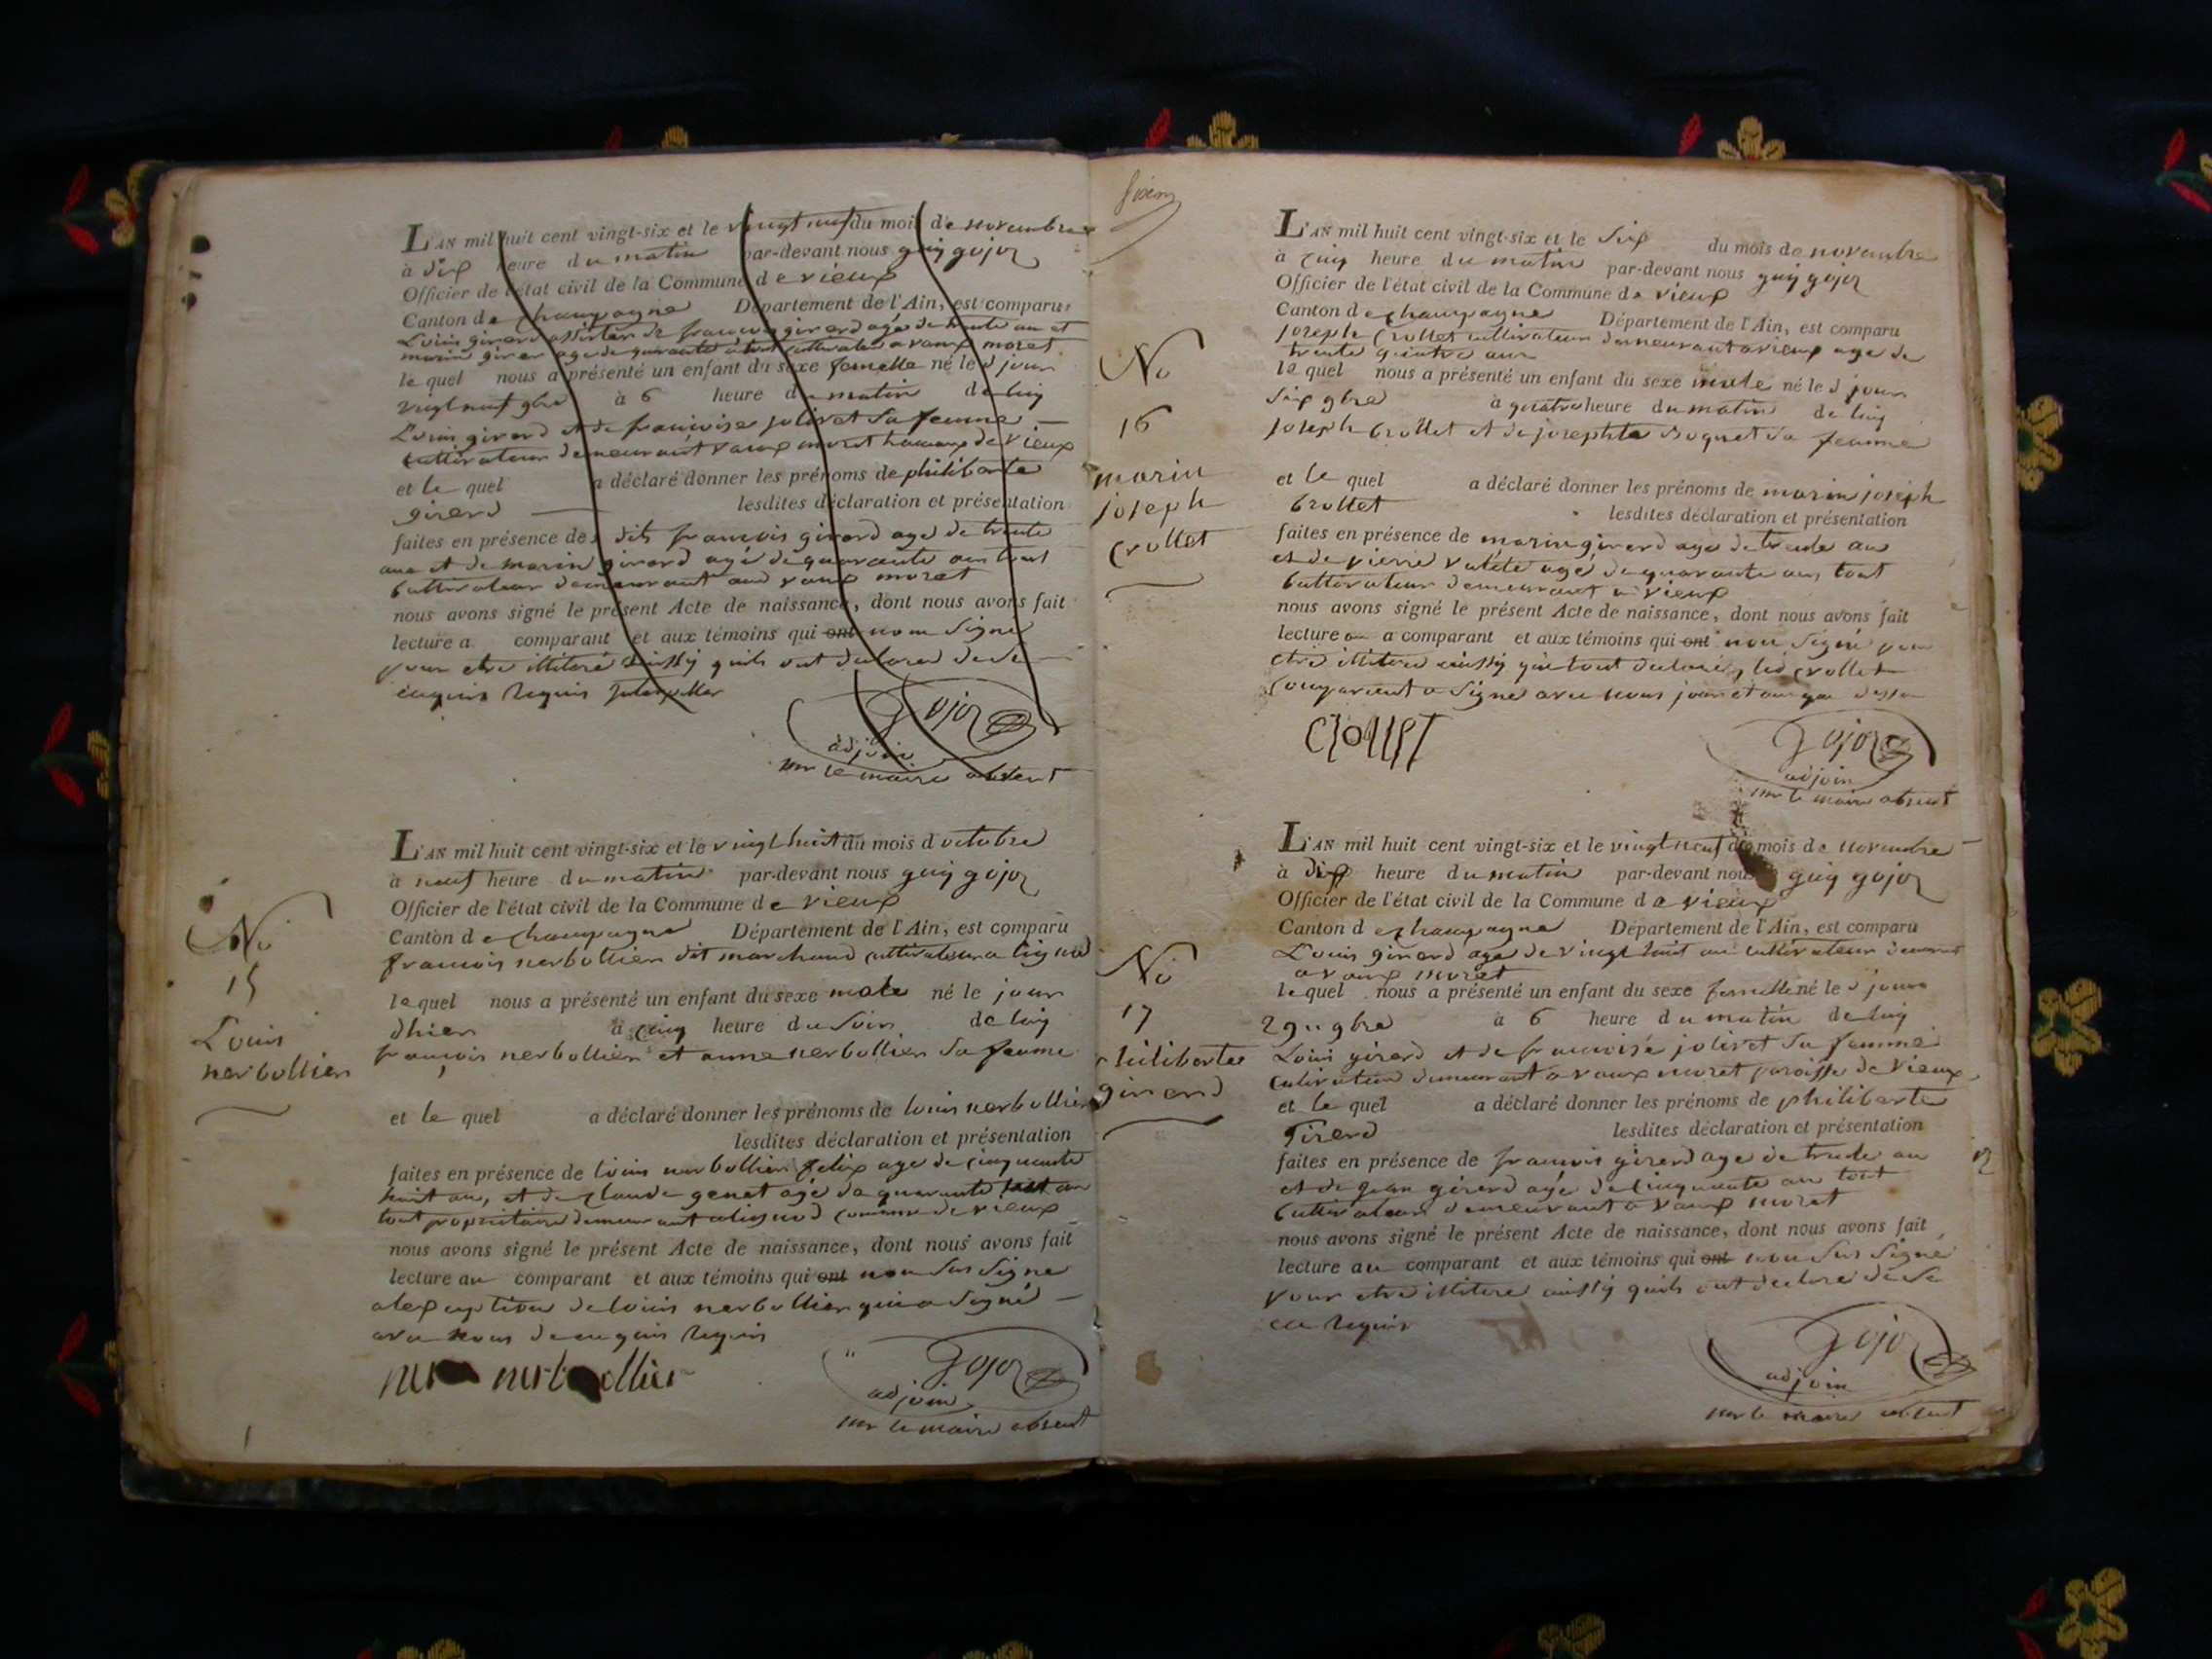 L'AN mil huit cent vingt-six et le vingt neuf du mois de novembre
à dix heure du matin par-devant nous guy gojoz
Officier de l'état civil de la Commune de vieux
Canton de champagne Département de l'Ain, est comparu
Louis girerd assister de francois girerd agé de trente an et
marin girer age de quarante cultivateur a vaux moret
le quel nous a présenté un enfant du sexe femelle né le d jour
vigt neuf gbre à 6 heure du matin de luy
Louis girerd et de francoise jolivet sa femme
cultivateur demeurant vaux moret hameau de vieux
et le quel a déclaré donner les prénoms de philiberte
girerd lesdites déclaration et présentation
faites en présence des dits francois girerd age de trente
ans et de marin girerd agé de quarante ans tout
cultivateur demeurant aud vaux moret
nous avons signé le présent Acte de naissance, dont nous avons fait
lecture a comparant et aux témoins qui ont non signé
pour etre illiteré ainssy quils ont declarer de ce
enquis requis
Gojoz
adjoin
mr le maire absent
L'AN mil huit cent vingt-six et le vingt huit du mois d octobre
à neuf heure du matin par-devant nous guy gojoz
Officier de l'état civil de la Commune de vieux
Canton de champagne Département de l'Ain, est comparu
francois nerbollier dit marchand cultivateur a lignod
le quel nous a présenté un enfant du sexe male né le jour
dhier à cinq heure du soir de luy
francois nerbollier et anne nerbollier sa femme
et le quel a déclaré donner les prénoms de louis nerbollier
lesdites déclaration et présentation
faites en présence de louis nerbollier felix age de cinquante
huit an, et de claude genet agé de quarante an
tout propriétaire demeurant a lignod commune de vieux
nous avons signé le présent Acte de naissance, dont nous avons fait
lecture au comparant et aux témoins qui ont non sus signe
a lexception de louis nerbollier qui a signé
avec nous de ce enquis requis
nerbollier
Gojoz
adjoin
mr le maire absent
No
15
Louis
nerbollier
L'AN mil huit cent vingt-six et le six du mois de novembre
à cinq heure du matin par-devant nous guy gojoz
Officier de l'état civil de la Commune de vieux
Canton de champagne Département de l'Ain, est comparu
joseph Crollet cultivateur demeurant a vieux age de
trente quatre ans
le quel nous a présenté un enfant du sexe male né le d jour
six gbre à quatre heure du matin de luy
joseph Crollet et de josephte Boquet sa femme
et le quel a déclaré donner les prénoms de marin joseph
Crollet lesdites déclaration et présentation
faites en présence de marin girerd age de trente an
et de pierre valété agé de quarante ans tout
cultivateur demeurant a vieux
nous avons signé le présent Acte de naissance, dont nous avons fait
lecture au a comparant et aux témoins qui ont non signé pour
etre illiteré ainssy que tout declaré, led Crollet
comparant a signe avec nous jour et an que dessu
Crollet
Gojoz
adjoin
mr le maire absent
No
16
marin
joseph
Crollet
L'AN mil huit cent vingt-six et le vingt neuf du mois de novembre
à dix heure du matin par-devant nous guy gojoz
Officier de l'état civil de la Commune de vieux
Canton de champagne Département de l'Ain, est comparu
Louis girerd age de vingt huit an cultivateur demeurant
a vaux moret
le quel nous a présenté un enfant du sexe femelle né le d jour
29 gbre à 6 heure du matin de luy
Louis girerd et de francoise jolivet sa femme
cultivateur demeurant a vaux moret paroisse de vieux
et le quel a déclaré donner les prénoms de philiberte
Girerd lesdites déclaration et présentation
faites en présence de francois girerd age de trente an
et de jean girerd agé de cinquante an tout
cultivateur demeurant a vaux moret
nous avons signé le présent Acte de naissance, dont nous avons fait
lecture au comparant et aux témoins qui ont non sus signé
pour etre illitere ainssy quils ont declaré de ce
en requis
Gojoz
adjoin
mr le maire absent
No
17
philiberte
girerd